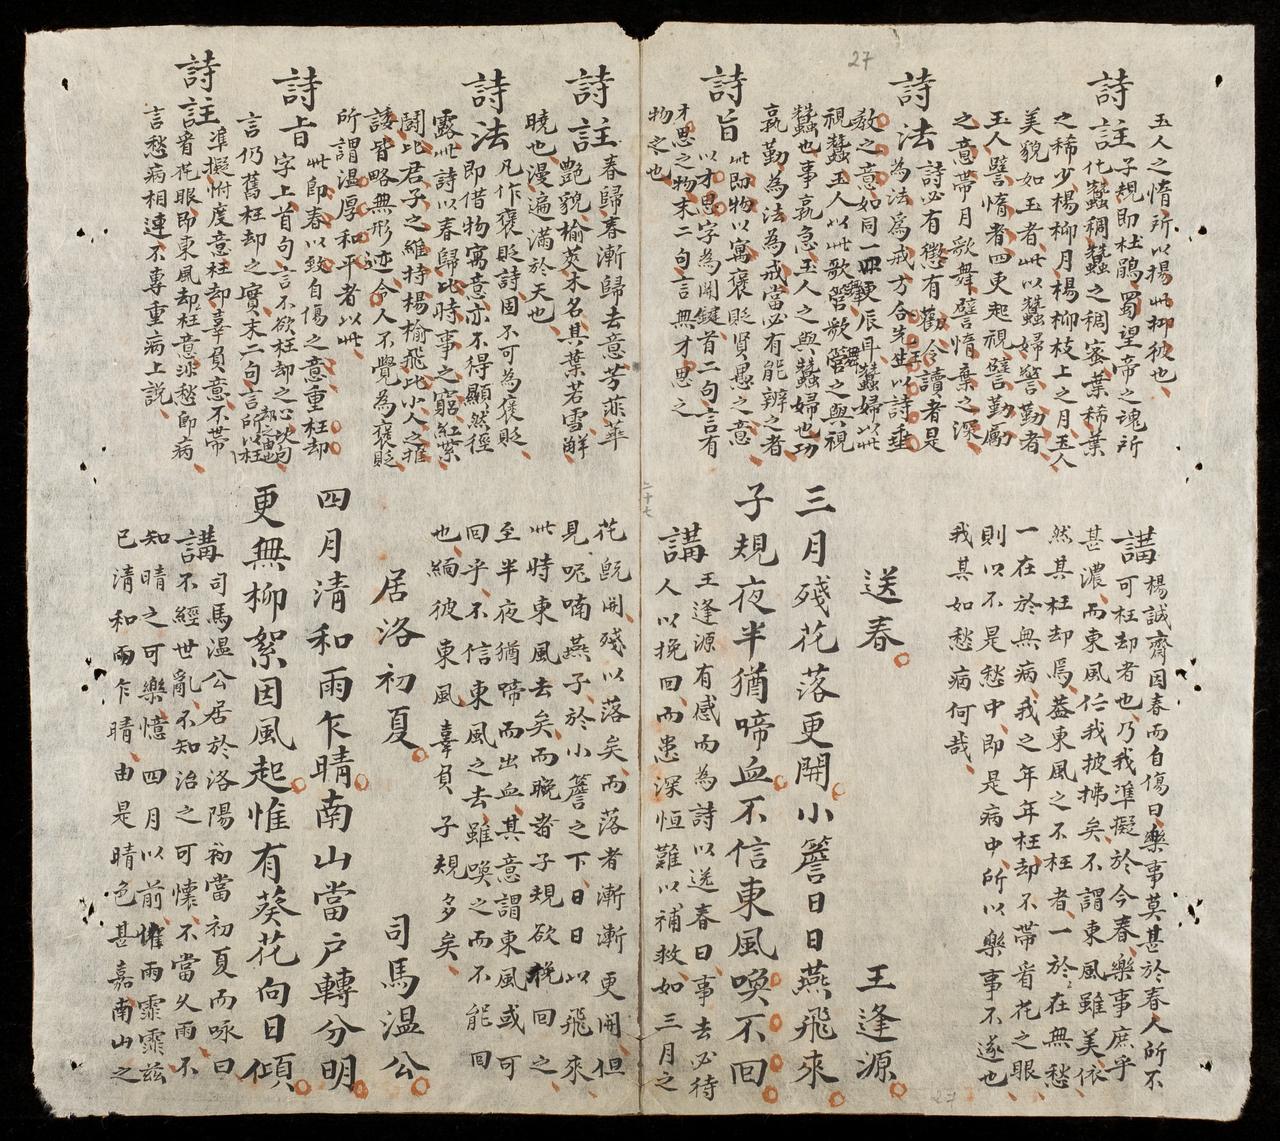 玉人之惰所以揚此抑彼也
詩註
子規即杜鵑蜀望帝之魂所
化蠶稠蠶之稠密葉稀葉
之稀少楊柳月楊柳枝上之月玉人
美貌如玉者此以蠶婦警勤者
玉人譬惰者四更起視譬勤厲
之意帶月歌舞譬惰棄之深
詩法
詩必有懲有勸令讀者是
為法為戒方合先王以詩垂
教之意如同一四更辰耳蠶婦以此
視蠶玉人以此歌管歌管之與視
蠶也事孰急玉人之與蠶婦也功
孰勤為法為戒當必有能辨之者
詩旨
此即物以寓褒貶賢愚之意
以才思字為関鍵首二句言有
才思之物末二句言無才思之
物之也
講
楊誠齋因春而自傷曰樂事莫甚於春人所不
可枉却者也乃我準擬於今春樂事庶乎
甚濃而東風任我披拂矣不謂東風雖美依
然其枉却焉葢東風之不枉者一於在無愁
一在於無病我之年年枉却不帶看花之眼
則以不是愁中即是病中所以樂事不遂也
我其如愁病何哉
送春 王逢源
三月殘花落更開小簷日日燕飛來
子規夜半猶啼血不信東風喚不回
講
王逢源有感而為詩以送春曰事去必待
人以挽回而患深恒難以補救如三月之
27
二十七
27
詩註
春歸春漸歸去意芳菲華
艷貌榆莢木名其葉若雪解
曉也漫遍滿於天也
詩法
凡作褒貶詩固不可為褒貶
即借物寓意亦不得顯然徑
露此詩以春歸比時事之窮紅紫
鬪比君子之維持楊榆飛比小人之推
諉皆略無形迹令人不覺為褒貶
所謂溫厚和平者以此
詩旨
此即春以致自傷之意重枉却
字上首句言不欲枉却之心次句
言仍舊枉却之實末二句言所以枉
詩註
準擬忖度意枉却辜負意不帶
看花眼即東風却枉意添愁即病
言愁病相連不專重病上説
花既開殘以落矣而落者漸漸更開但
見呢喃燕子於小簷之下日日以飛來
此時東風去矣而晚者子規欲挽回之
至半夜猶啼而出血其意謂東風或可
回乎不信東風之去雖喚之而不能回
也緬彼東風辜負子規多矣
居洛初夏 司馬溫公
四月清和雨乍晴南山當户轉分明
更無柳絮因風起惟有葵花向日傾
講
司馬溫公居於洛陽初當初夏而咏曰
不經世亂不知治之可懷不當久雨不
知晴之可樂憶四月以前惟雨霏霏兹
已清和雨乍晴由是晴色甚嘉南山之